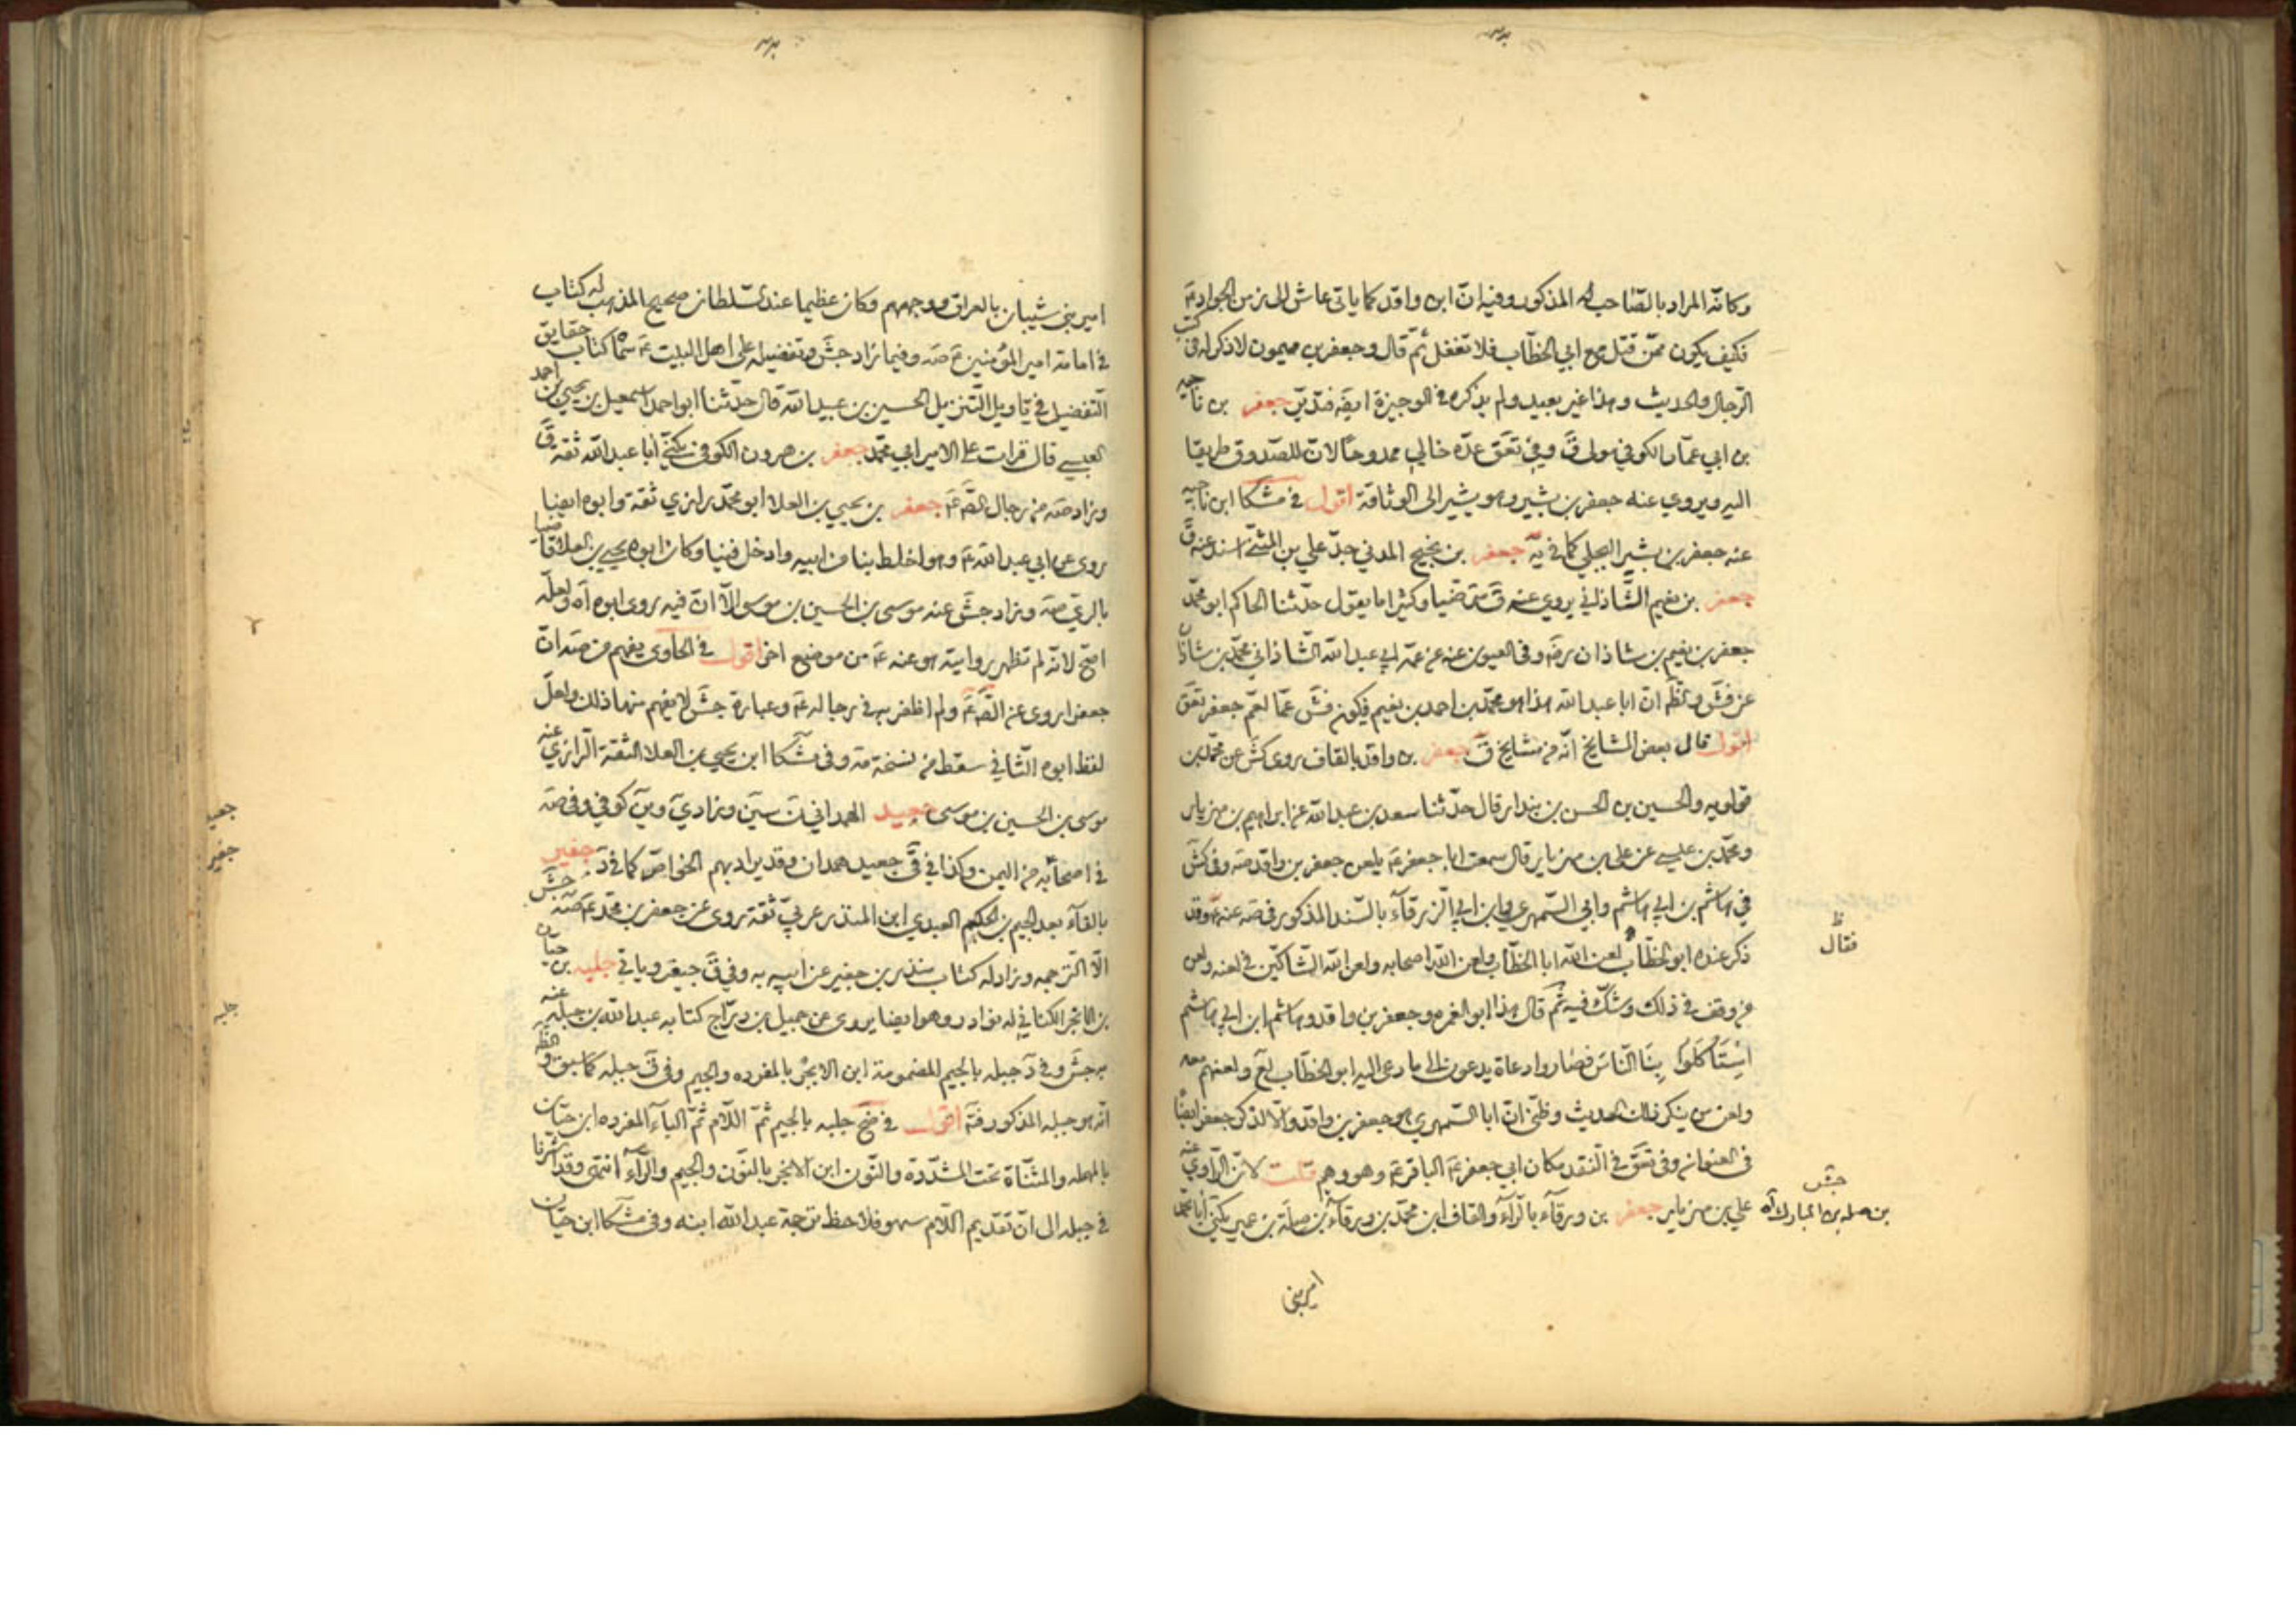 وكانّه المراد بالصّاحب له المذكور وفيه انّ ابن واقد كما ياتى عاش الى زمن الجواد عَ
فكيف يكون ممّن قتل مع ابي الخطّاب فلا تغفل ثمّ قال وجعفر بن ميمون لا ذكر له فى كتب
الرّجال والحديث وهذا غير بعيد ولم يذكره في الوجيزة ايضَ فتدبّر جعفر بن ناجيه
بن ابي عمّار الكوفي مولى قَ وفي تعَق عدّه خالي ممدوحًا لانّ للصّدوق طريقا
اليه ويروي عنه جعفر بن بشير وهو يشير الى الوثاقة اقول في مشكا ابن ناجيه
عنه جعفر بن بشير البجلي كما في يَه جعفر بن نجيح المدني جدّ علي بن المثنّى اسند عنه قَ
جعفر بن نعيم الشّاذاني يروي عنه قَ مترضّيا وكثيرا ما يقول حدّثنا الحاكم ابو محمّد
جعفر بن نعيم بن شاذان رضَه وفى العيون عنه عن عمّه ابي عبد الله الشّاذاني محمّد بن شاذان
عن فَش والظَ انّ ابا عبد الله هذا هو محمّد بن احمد بن نعيم فيكون فَش عمّا لعمّ جعفر تعَق
اقول قال بعض المشايخ انّه من مشايخ قَ جعفر بن واقد بالقاف روى كَش عن محمّد بن
قولويه والحسين بن الحسن بن بندار قال حدّثنا سعد بن عبد الله عن ابراهيم بن مهزيار
ومحمّد بن عيسى عن علي بن مهزيار قال سمعت ابا جعفر عَ يلعن جعفر بن واقد صَه وفى كَش
في هاشم بن ابي هاشم وابي السّمهري وابن ابي الزّرقآء بالسّند المذكور فى صَه عنه عَ وقد
ذكر عنده ابو الخطّاب لعن الله ابا الخطّاب ولعن الله اصحابه ولعن الله الشّاكّين في لعنه ولعن
فقال
من وقف في ذلك وشكّ فيه ثمّ قال هذا ابو الغمر وجعفر بن واقد وهاشم ابن ابي هاشم
اسْتَاكَلُوا بِنَا النّاس فصاروا دعاة يدعون الى ما دعى اليه ابو الخطّاب لعَ ولعنهم معه
ولعن من ينكر ذلك الحديث وظنّي انّ ابا السّمهري هو جعفر بن واقد والّا لذكر جعفر ايضًا
فى العنوان وفى تعَق في النّقد مكان ابي جعفر عَ الباقر عَ وهو وهم قلت لانّ الرّاوي عنه
علي بن مهزيار جعفر بن ورقآء بالرّآء والقاف ابن محمّد بن ورقآء بن صلة بن عمير يكنّى أبا محمّد
جَش
بن صله بن المبارك آه
امير بني
امير بني شيبان بالعراق ووجههم وكان عظيما عند السّلطان صحيح المذهب له كتاب
في امامة امير المؤمنين عَ صَه وفيما زاد جَش وتفضيله على اهل البيت عَ سمّاه كتاب حقايق
التّفضيل في تاويل التّنزيل الحسين بن عبيد الله قال حدّثنا ابو احمد اسمعيل بن يحيى بن احمد
العبسى قال قرات على الامير ابي محمّد جعفر بن هرون الكوفى يكنّى أبا عبد الله ثقه قَ
وزاد صَه من رجال الصَّ عَ جعفر بن يحيى بن العلا ابو محمّد رازي ثقة وابوه ايضا
روى عن ابي عبد الله عَ وهو اخلط بنا من ابيه وادخل فينا وكان ابوه يحيى بن العلا قاضيا
بالري صَه وزاد جَش عنه موسى بن الحسين بن موسى الّا انّ فيه روى ابوه آه ولعلّه
اصحّ لانّه لم تظهر روايته هو عنه عَ من موضع اخر اقول في الحاوي يفهم من صَه انّ
جعفرا روى عن الصَّ عَ ولم اظفر به في رجاله عَ وعبارة جَش لا يفهم منها ذلك ولعلّ
لفظ ابوه الثّاني سقط من نسخة صَه وفى مشكا ابن يحيى بن العلا الثقة الرّازي عنه
موسى بن الحسين بن موسى جعيد الهمداني نَ سين وزاد يَ وينَ كوفي وفي صَه
في اصحابه من اليمن وكذا في قَى جعيد همدان وقد يراد بهم الخواصّ كما في دَ جفير
بالفآء بعد الجيم بن الحكم العبدي ابن المنذر عربيّ ثقة روى عن جعفر بن محمّد عَ صَه جَش
الّا التّرجمه وزاد له كتاب منذر بن جفير عن ابيه به وفي قَ جيفر وياتي جلبه بن حيّان
بن الابجر الكناني له نوادر وهو ايضا يروى عن جميل بن درّاج كتابه عبد الله بن جبله عنه
به جَش وفي دَ جبله بالجيم المضمومة ابن الابجر بالمفرده والجيم وفى قَ جبله كما سبق والظَ
انّه هو جبله المذكور فتَه اقول في ضَح جلبه بالجيم ثمّ اللّام ثمّ البآء المفرده ابن حيّان
بالمهمله والمثنّاة تحت المشدّدة والنّون ابن الانجر بالنّون والجيم والرّآء انتهى وقد اشرنا
في جبله الى انّ تقديم اللّام سهو فلاحظ ترجمة عبد الله ابنه وفى مشكا ابن حيّان
جعيد
جفير
جلبه